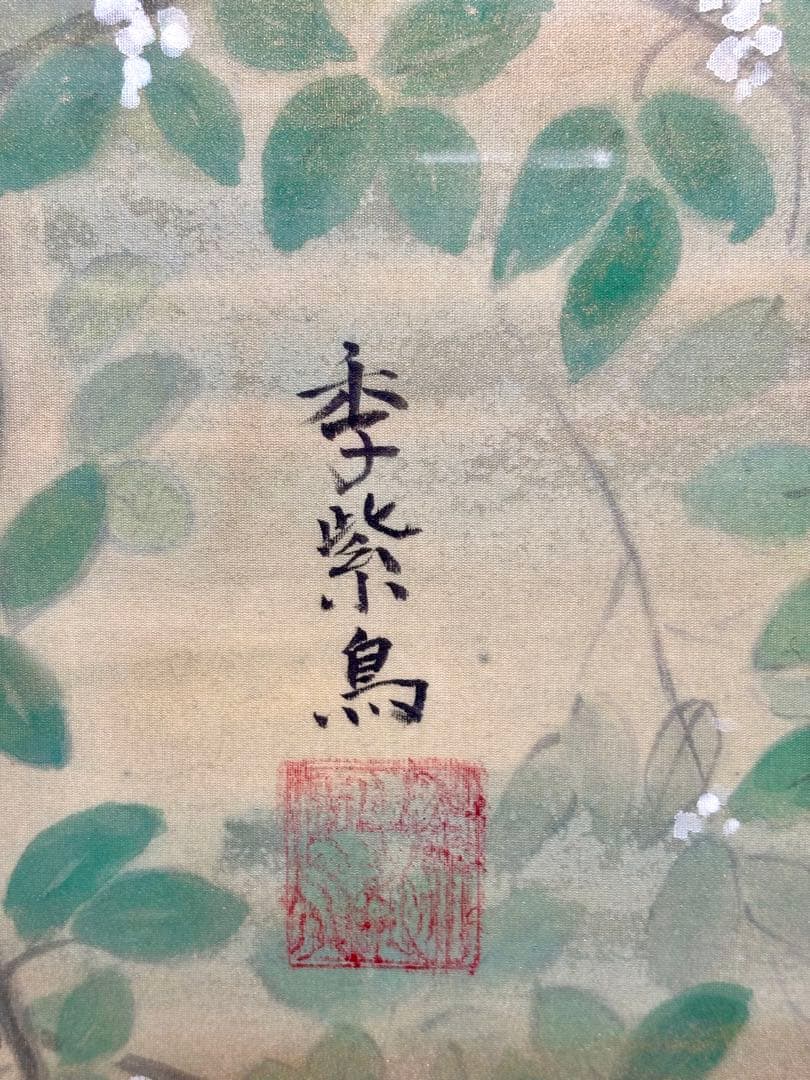 季紫鳥